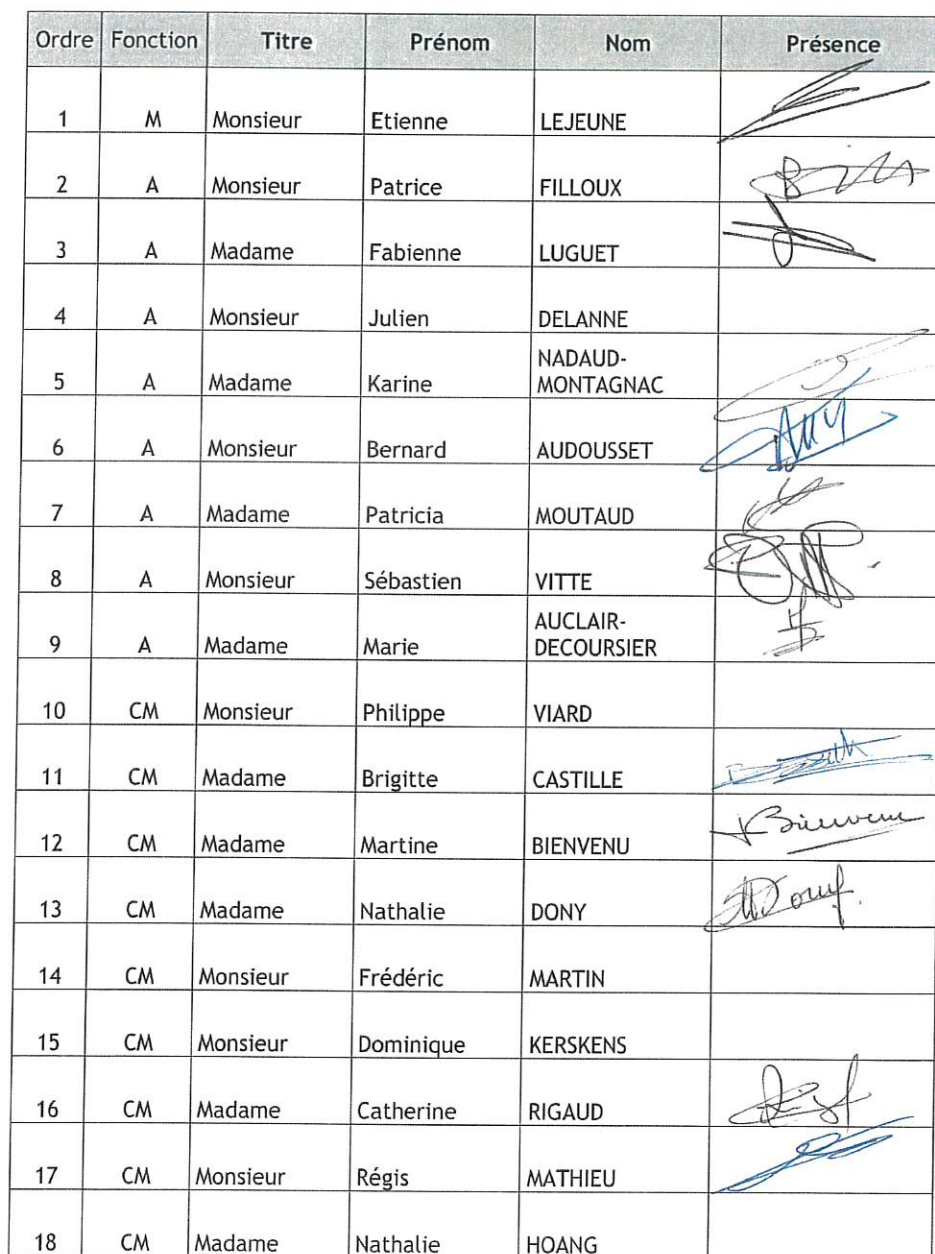 Ordre Fonction Titre Prénom Nom Présence
1 M Monsieur Etienne LEJEUNE
2 A Monsieur Patrice FILLOUX
3 A Madame Fabienne LUGUET
4 A Monsieur Julien DELANNE
5 A Madame Karine NADAUD-
MONTAGNAC
6 A Monsieur Bernard AUDOUSSET
7 A Madame Patricia MOUTAUD
8 A Monsieur Sébastien VITTE
9 A Madame Marie AUCLAIR-
DECOURSIER
10 CM Monsieur Philippe VIARD
11 CM Madame Brigitte CASTILLE
12 CM Madame Martine BIENVENU Bienvenu
13 CM Madame Nathalie DONY Dony
14 CM Monsieur Frédéric MARTIN
15 CM Monsieur Dominique KERSKENS
16 CM Madame Catherine RIGAUD
17 CM Monsieur Régis MATHIEU
18 CM Madame Nathalie HOANG